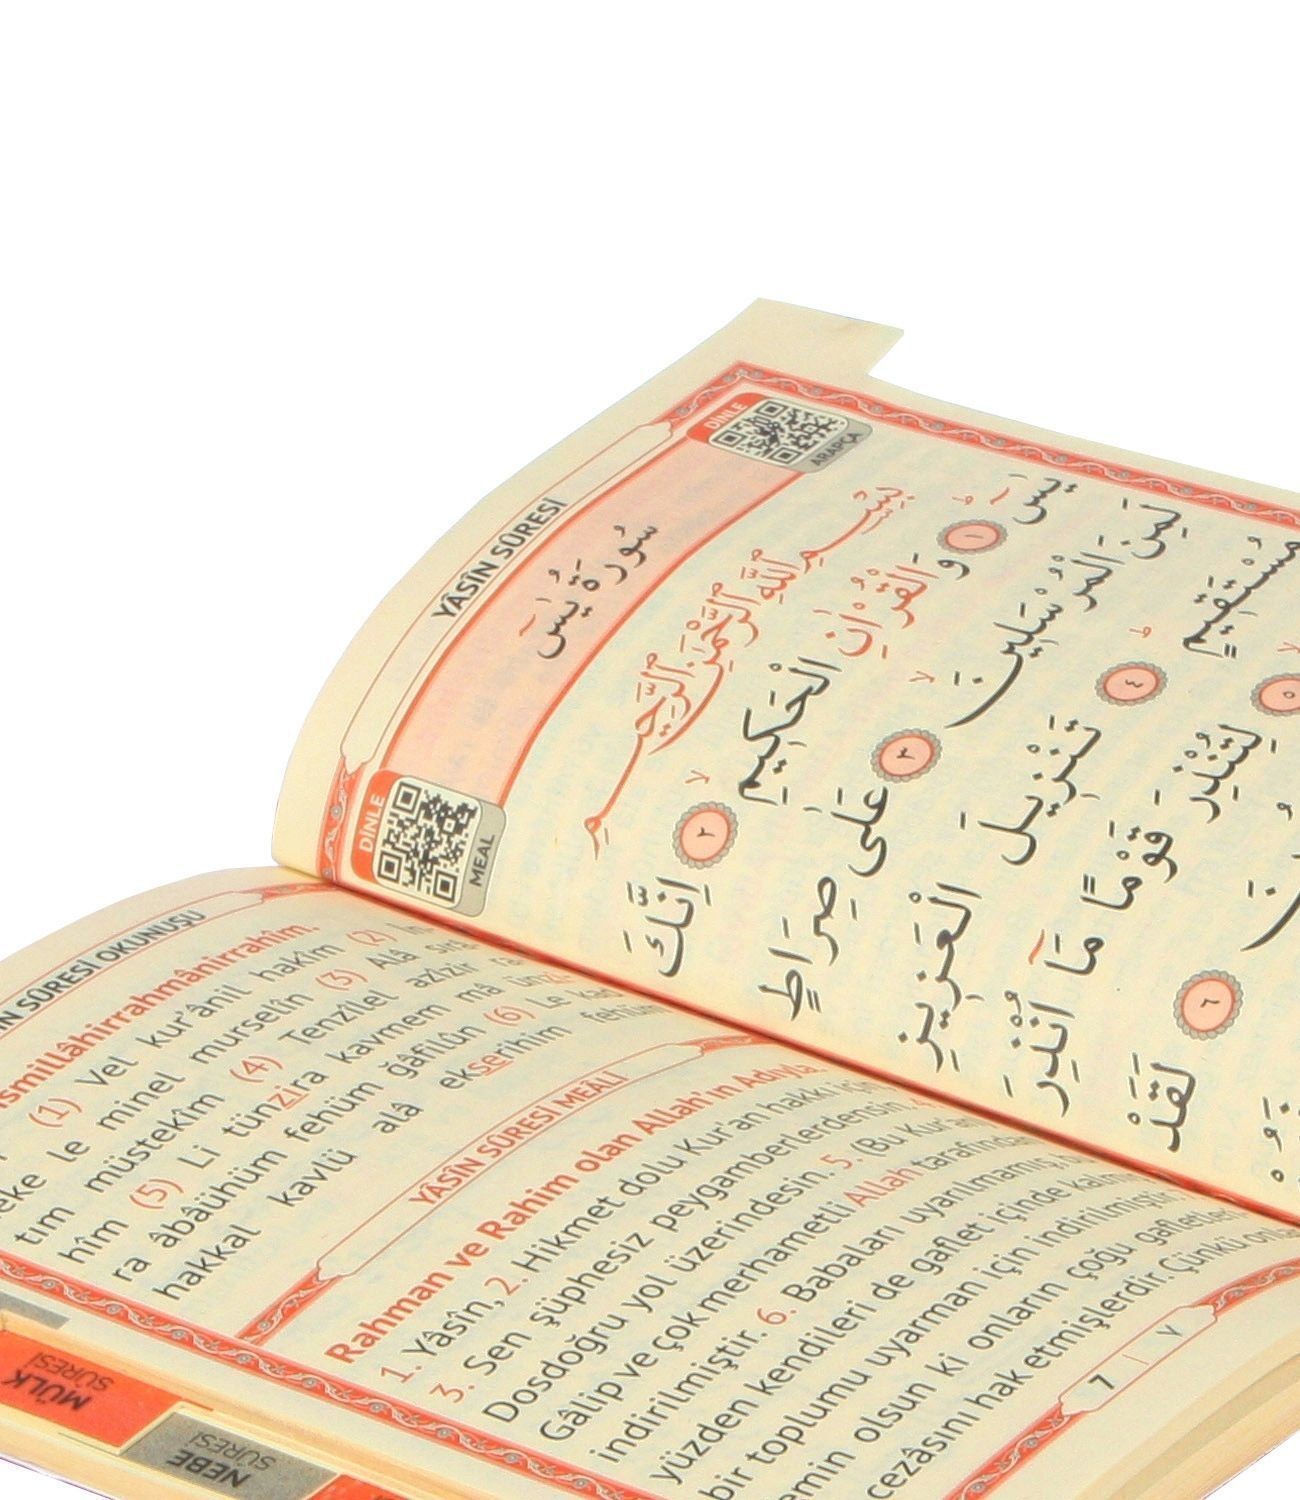 YÂSÎN SÛRESİ
DİNLE
ARAPÇA
سُورَةُ يٰسٓ
DİNLE
MEAL
بِسْمِ اللّٰهِ الرَّحْمٰنِ الرَّحِيمِ
يٰسٓ ۚ ﴿١﴾ وَالْقُرْاٰنِ الْحَكِيمِ ۙ ﴿٢﴾ اِنَّكَ
لَمِنَ الْمُرْسَلِينَ ۙ ﴿٣﴾ عَلٰى صِرَاطٍ
مُسْتَقِيمٍ ۜ ﴿٤﴾ تَنْزِيلَ الْعَزِيزِ
﴿٥﴾ لِتُنْذِرَ قَوْمًا مَٓا اُنْذِرَ
﴿٦﴾ لَقَدْ
SÛRESİ OKUNUŞU
(1) Vel kur'ânil hakîm (2) İn-
neke le minel murselîn (3) Alâ sırâ-
tım müstekîm (4) Tenzîlel azîzir ra-
hîm (5) Li tünzira kavmem mâ ünzi-
ra âbâühüm fehüm ğâfilûn (6) Le kad
hakkal kavlü alâ ekserihim fehüm
YÂSÎN SÛRESİ MEÂLİ
Rahman ve Rahim olan Allah'ın Adıyla.
1. Yâsîn, 2. Hikmet dolu Kur'an hakkı için
3. Sen şüphesiz peygamberlerdensin.
Dosdoğru yol üzerindesin. 5. (Bu Kur'an
Gâlip ve çok merhametli Allah tarafından
indirilmiştir. 6. Babaları uyarılmamış,
yüzden kendileri de gaflet içinde kalmış
bir toplumu uyarman için indirilmiştir.
emin olsun ki onların çoğu gafletleri
cezâsını hak etmişlerdir. Çünkü onlar
7 | ٧
MÜLK
SÛRESİ
NEBE
SÛRESİ